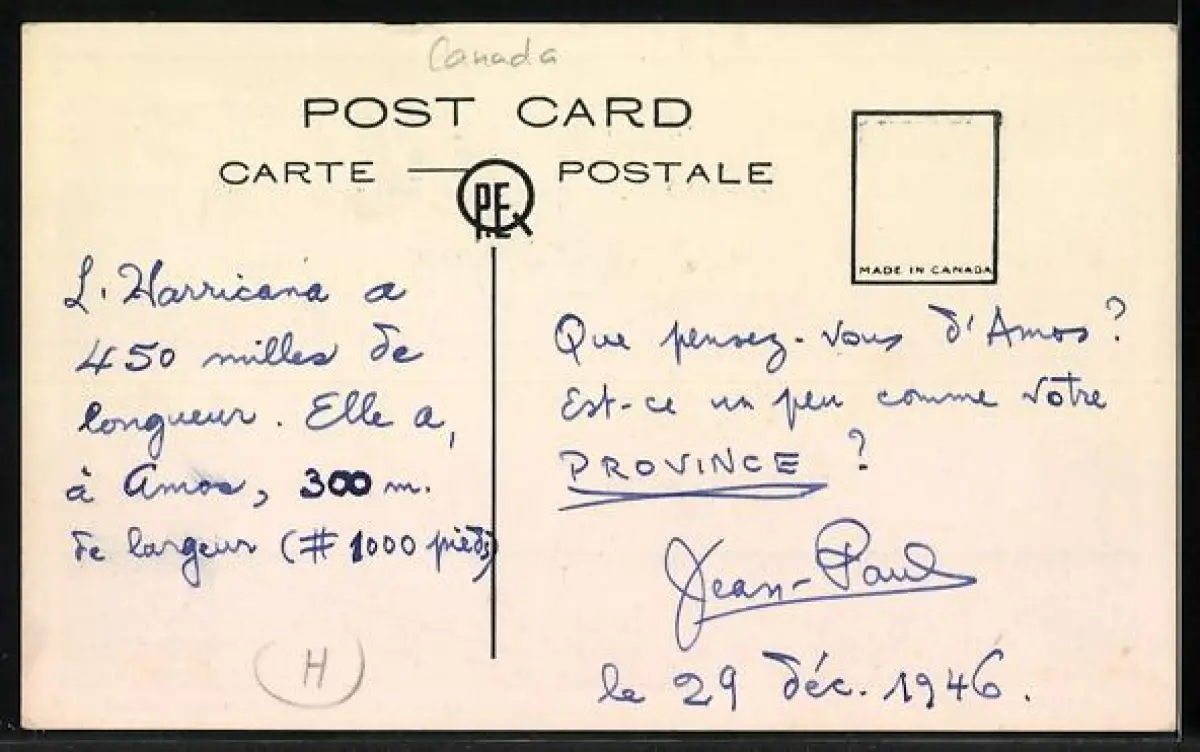 Canada
POST CARD
CARTE POSTALE
P.E.Q
MADE IN CANADA
L'Harricana a
450 milles de
longueur. Elle a,
à Amos, 300 m.
de largeur (# 1000 pieds)
H
Que pensez-vous d'Amos?
Est-ce un peu comme votre
PROVINCE ?
Jean-Paul
le 29 déc. 1946.